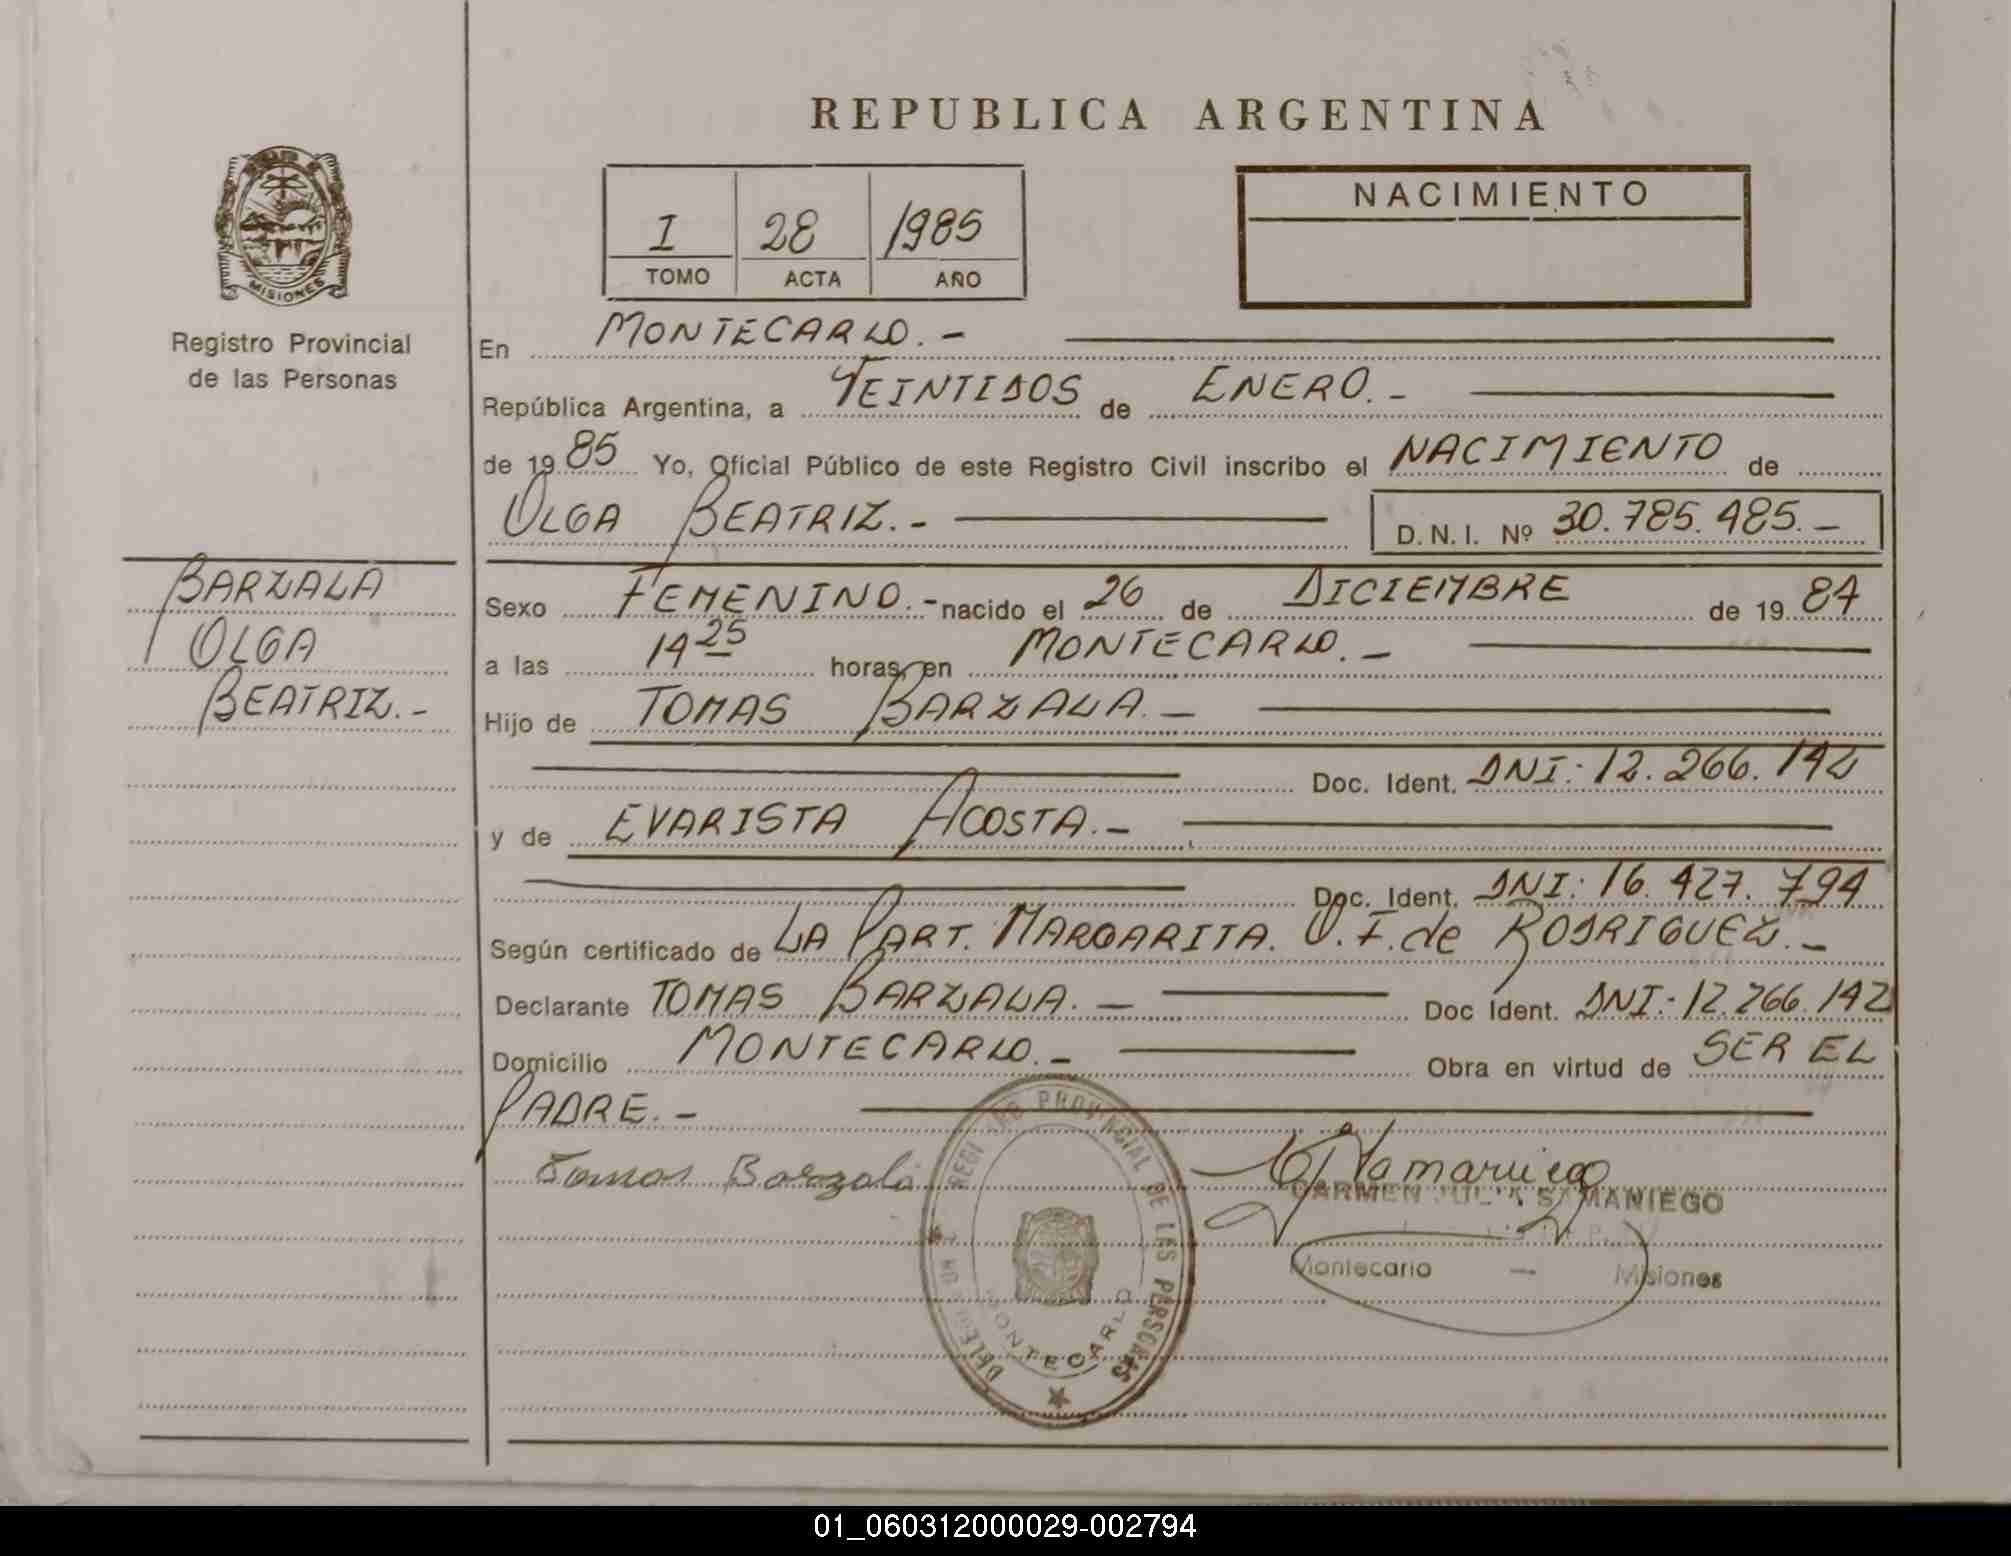 REPUBLICA ARGENTINA
MISIONES
Registro Provincial
de las Personas
I 28 1985
TOMO ACTA AÑO
NACIMIENTO
En MONTECARLO.-
República Argentina, a VEINTIDOS de ENERO.-
de 1985 Yo, Oficial Público de este Registro Civil inscribo el NACIMIENTO de
OLGA BEATRIZ.- D.N.I. Nº 30.785.485.-
BARZALA
OLGA
BEATRIZ.-
Sexo FEMENINO.- nacido el 26 de DICIEMBRE de 1984
a las 14 25 horas, en MONTECARLO.-
Hijo de TOMAS BARZALA.-
Doc. Ident. DNI: 12.266.142
y de EVARISTA ACOSTA.-
Doc. Ident. DNI: 16.427.794
Según certificado de LA PART. MARGARITA. O. F. de RODRIGUEZ.-
Declarante TOMAS BARZALA.- Doc Ident. DNI: 12.266.142
Domicilio MONTECARLO.- Obra en virtud de SER EL
PADRE.-
Tomas Barzala
REGISTRO PROVINCIAL DE LAS PERSONAS
MONTECARLO
CARMEN JULIA SAMANIEGO
Montecarlo - Misiones
01_060312000029-002794